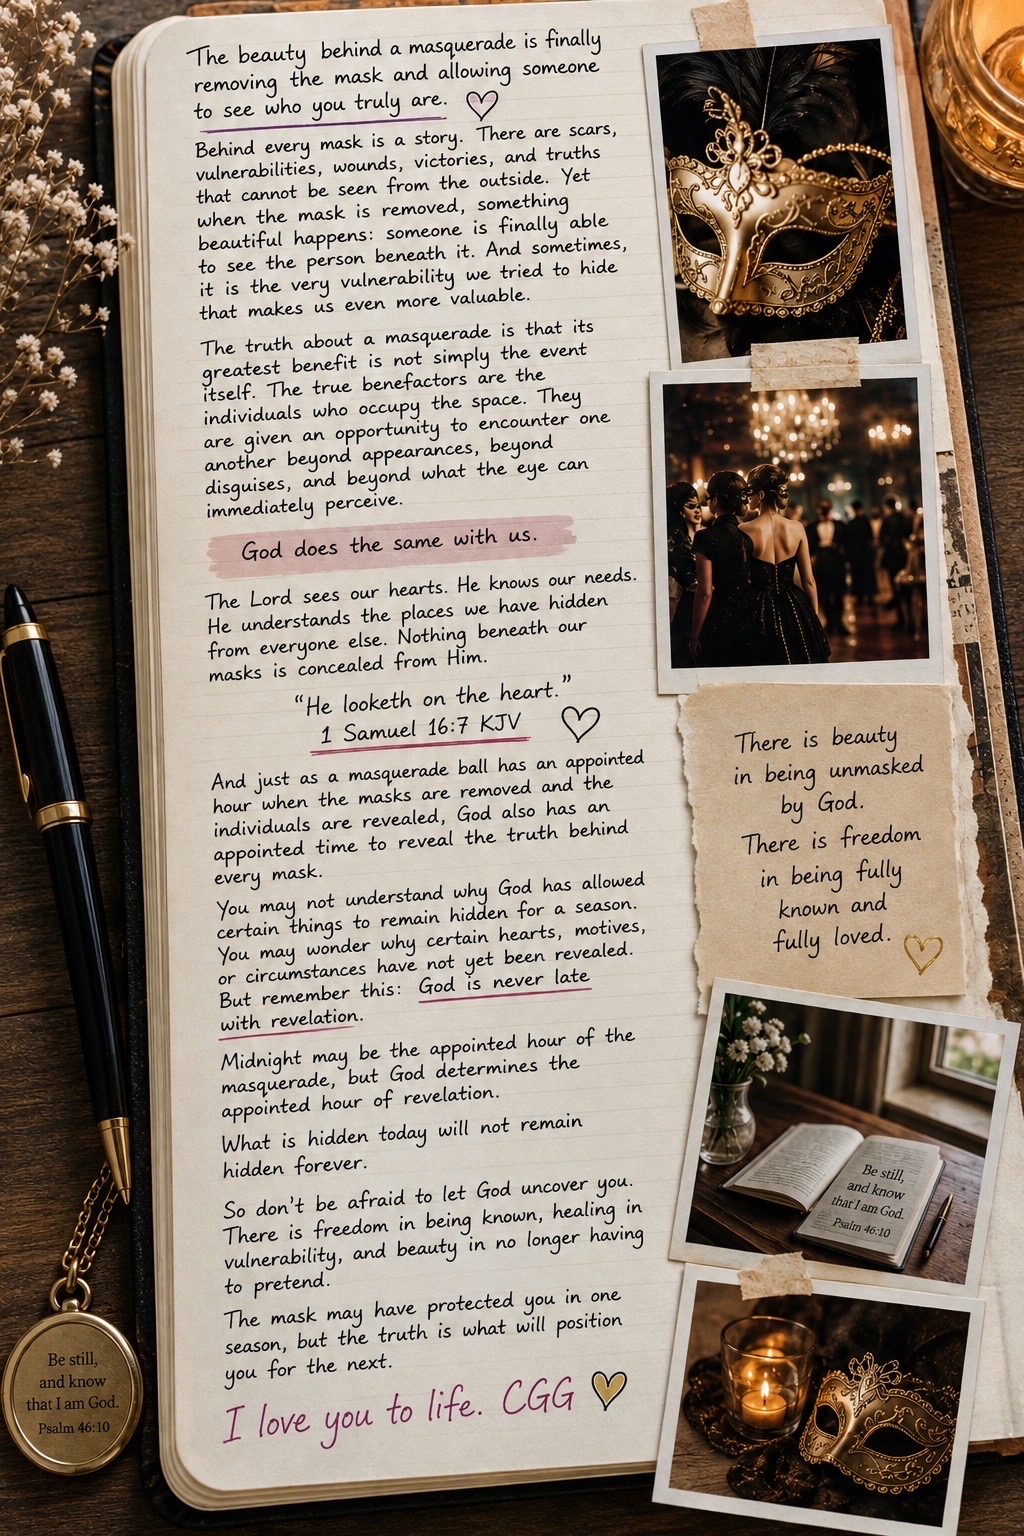 The beauty behind a masquerade is finally
removing the mask and allowing someone
to see who you truly are.
Behind every mask is a story. There are scars,
vulnerabilities, wounds, victories, and truths
that cannot be seen from the outside. Yet
when the mask is removed, something
beautiful happens: someone is finally able
to see the person beneath it. And sometimes,
it is the very vulnerability we tried to hide
that makes us even more valuable.
The truth about a masquerade is that its
greatest benefit is not simply the event
itself. The true benefactors are the
individuals who occupy the space. They
are given an opportunity to encounter one
another beyond appearances, beyond
disguises, and beyond what the eye can
immediately perceive.
God does the same with us.
The Lord sees our hearts. He knows our needs.
He understands the places we have hidden
from everyone else. Nothing beneath our
masks is concealed from Him.
“He looketh on the heart.”
1 Samuel 16:7 KJV
And just as a masquerade ball has an appointed
hour when the masks are removed and the
individuals are revealed, God also has an
appointed time to reveal the truth behind
every mask.
You may not understand why God has allowed
certain things to remain hidden for a season.
You may wonder why certain hearts, motives,
or circumstances have not yet been revealed.
But remember this: God is never late
with revelation.
Midnight may be the appointed hour of the
masquerade, but God determines the
appointed hour of revelation.
What is hidden today will not remain
hidden forever.
So don't be afraid to let God uncover you.
There is freedom in being known, healing in
vulnerability, and beauty in no longer having
to pretend.
The mask may have protected you in one
season, but the truth is what will position
you for the next.
I love you to life. CGG
There is beauty
in being unmasked
by God.
There is freedom
in being fully
known and
fully loved.
Be still,
and know
that I am God.
Psalm 46:10
Be still,
and know
that I am God.
Psalm 46:10